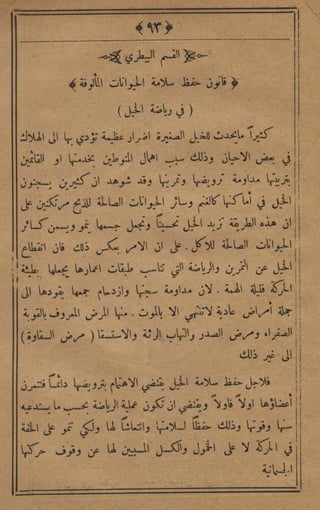 ﴿ ٩٣ ﴾
القسم البيطري
﴿ قانون حفظ سلامة الحيوانات المألوفة ﴾
( في رياضة الخيل )
كثيراً مايحدث للخيل الصغيرة اضرار عظيمة تؤدي بها الى الهلاك
في بعض الاحيان وذلك سبب اهمال المنوطين بخدمتها او القائمين
بتربيتها مداومة ترويضها وتمرينها وقد شوهد ان كثيرين يسجنون
الخيل في أماكنها كالغنم وسائر الحيوانات الصالحة للذبح مرتكنين على
ان هذه الطريقة تزيد الخيل تحسيناً وتجعل جسمها ينمو ويسمن كسائر
الحيوانات الصالحة للاكل . على ان الامر بعكس ذلك فان انقطاع
الخيل عن التمرين والرياضة التي تناسب طبقات اعمارها يجعلها بطيئة
الحركة قليلة الهمة . لان مداومة سجنها وازدحام جمعها يقودها الى
جملة أمراض عادية لاتنتهي الا بالموت . منها المرض المعروف بالقوبة
الصفراء ومرض الصدر والتهاب الرئة والاستسقا ( مرض السقاوة )
الى غير ذلك
فلاجل حفظ سلامة الخيل يقتضي الاهتمام بترويضها دائماً فتتمرن
أعضاؤها اولاً فاولاً ويقتضي ان تكون عملية الرياضة بحسب ما يستدعيه
سنها وقوتها وذلك حفظاً لسلامتها وانتعاشاً لها ولكي تنمو على الخفة
في الحركة لا على الخمول والكسل المسببين لها عن وقوف حركتها
الجسمانية